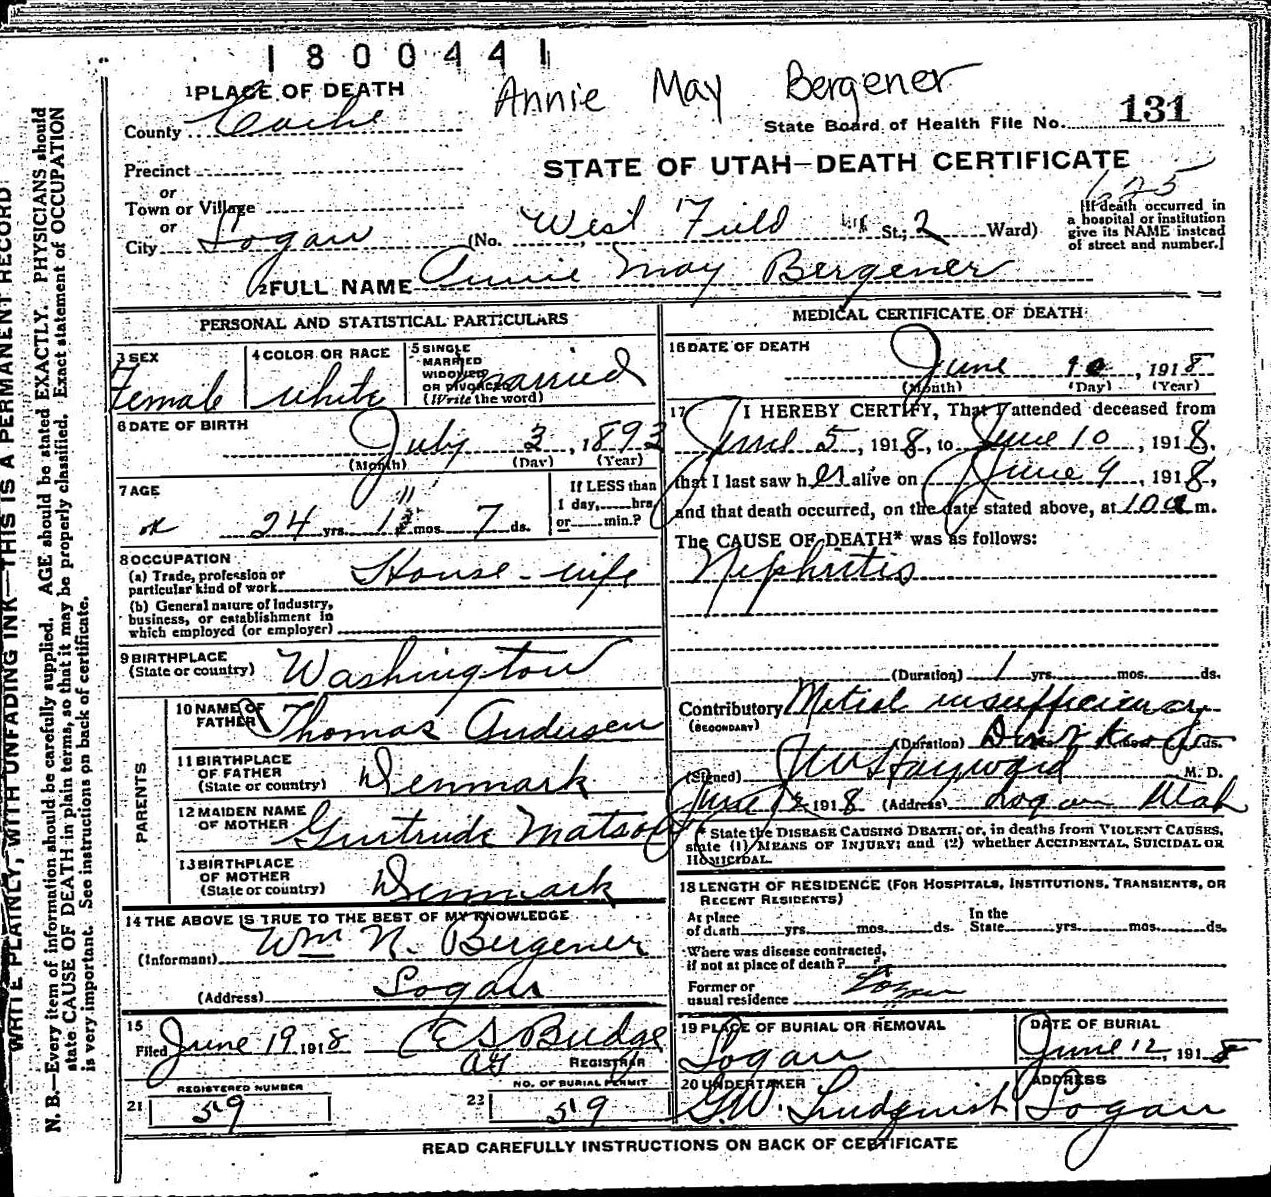 1800441
Annie May Bergener
1 PLACE OF DEATH
County Cache
State Board of Health File No. 131
Precinct
STATE OF UTAH—DEATH CERTIFICATE
or
Town or Village
or
625
City Logan (No. West Field St; 2 Ward)
[If death occurred in
a hospital or institution
give its NAME instead
of street and number.]
2 FULL NAME Annie May Bergener
PERSONAL AND STATISTICAL PARTICULARS
3 SEX
Female
4 COLOR OR RACE
White
5 SINGLE
MARRIED
WIDOWED
OR DIVORCED
(Write the word)
married
6 DATE OF BIRTH
July 3, 1893
(Month) (Day) (Year)
7 AGE
24 yrs. 11 mos. 7 ds.
If LESS than
1 day, hrs.
or min.?
8 OCCUPATION
(a) Trade, profession or
particular kind of work House-wife
(b) General nature of Industry,
business, or establishment in
which employed (or employer)
9 BIRTHPLACE
(State or country) Washington
PARENTS
10 NAME OF
FATHER Thomas Andersen
11 BIRTHPLACE
OF FATHER
(State or country) Denmark
12 MAIDEN NAME
OF MOTHER Gertrude Matson
13 BIRTHPLACE
OF MOTHER
(State or country) Denmark
14 THE ABOVE IS TRUE TO THE BEST OF MY KNOWLEDGE
(Informant) Wm N. Bergener
(Address) Logan
15
Filed June 19 1918 E S Budge
REGISTRAR
REGISTERED NUMBER
21 59
NO. OF BURIAL PERMIT
23 59
MEDICAL CERTIFICATE OF DEATH
16 DATE OF DEATH
June 10, 1918
(Month) (Day) (Year)
17 I HEREBY CERTIFY, That I attended deceased from
June 5, 1918, to June 10, 1918,
that I last saw her alive on June 9, 1918,
and that death occurred, on the date stated above, at 10 a m.
The CAUSE OF DEATH* was as follows:
Nephritis
(Duration) 1 yrs. mos. ds.
Contributory Mitral insufficiency
(SECONDARY)
(Duration) Don't Know yrs. mos. ds.
(Signed) J W Hayward M. D.
June 12 1918 (Address) Logan Utah
* State the DISEASE CAUSING DEATH, or, in deaths from VIOLENT CAUSES,
state (1) MEANS OF INJURY; and (2) whether ACCIDENTAL, SUICIDAL OR
HOMICIDAL.
18 LENGTH OF RESIDENCE (FOR HOSPITALS, INSTITUTIONS, TRANSIENTS, OR
RECENT RESIDENTS)
At place
of death yrs. mos. ds.
In the
State yrs. mos. ds.
Where was disease contracted,
if not at place of death?
Former or
usual residence Logan
19 PLACE OF BURIAL OR REMOVAL
Logan
DATE OF BURIAL
June 12, 1918
20 UNDERTAKER
G.W. Lindquist
ADDRESS
Logan
READ CAREFULLY INSTRUCTIONS ON BACK OF CERTIFICATE
WRITE PLAINLY, WITH UNFADING INK—THIS IS A PERMANENT RECORD
N. B.—Every item of information should be carefully supplied. AGE should be stated EXACTLY. PHYSICIANS should
state CAUSE OF DEATH in plain terms, so that it may be properly classified. Exact statement of OCCUPATION
is very important. See instructions on back of certificate.